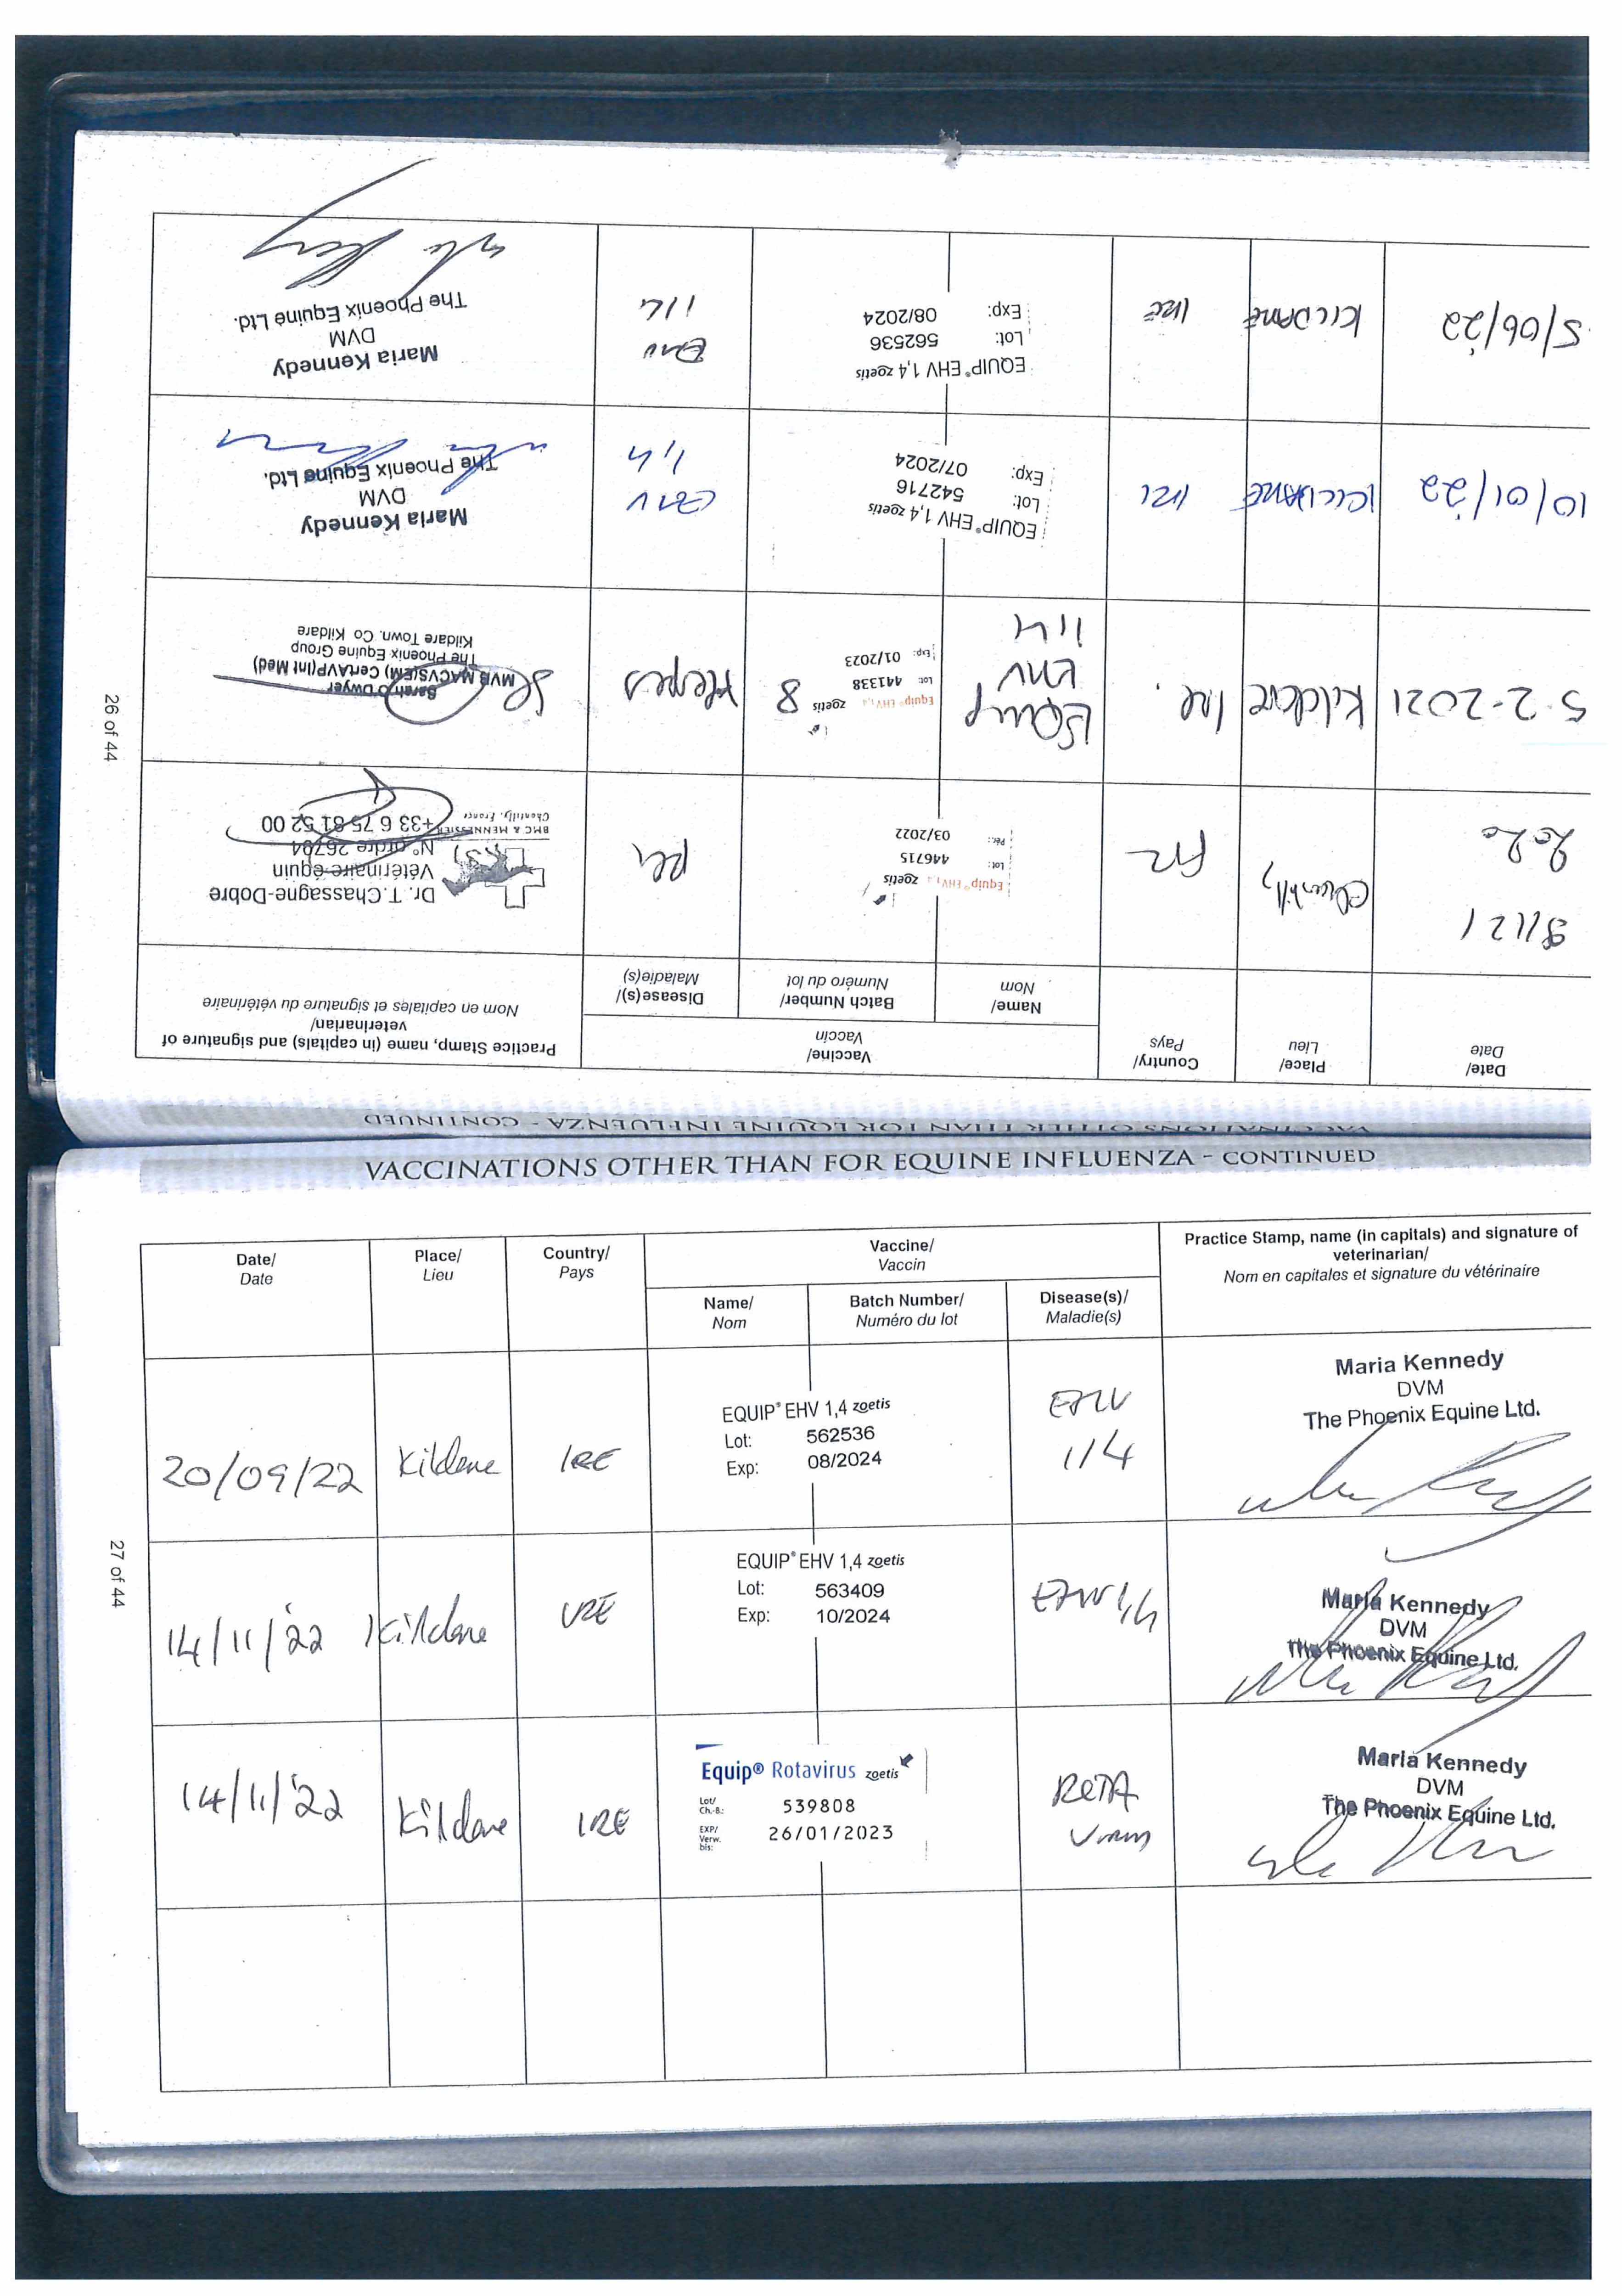 VACCINATIONS OTHER THAN FOR EQUINE INFLUENZA - CONTINUED
Date/
Date
Place/
Lieu
Country/
Pays
Vaccine/
Vaccin
Name/
Nom
Batch Number/
Numéro du lot
Disease(s)/
Maladie(s)
Practice Stamp, name (in capitals) and signature of
veterinarian/
Nom en capitales et signature du vétérinaire
2020
Chantilly
FR
Equip® EHV 1,4 zoetis
Lot: 446715
Pér.: 03/2022
Dr. T. Chassagne-Dobre
Vétérinaire équin
N° ordre 26794
+33 6 75 81 52 00
BMC & MENNESSIER
Chantilly, France
5-2-2021
Kildare
Ire.
Equip
EHV
1,4
Equip® EHV 1,4 zoetis
Lot: 441338
Exp: 01/2023
8
Herpes
Sarah O'Dwyer
MVB MACVS(EM) CertAVP(Int Med)
The Phoenix Equine Group
Kildare Town. Co Kildare
10/01/22
KILDARE
IRE
EQUIP® EHV 1,4 zoetis
Lot: 542716
Exp: 07/2024
EHV
1,4
Maria Kennedy
DVM
The Phoenix Equine Ltd.
5/06/22
KILDARE
IRE
EQUIP® EHV 1,4 zoetis
Lot: 562536
Exp: 08/2024
EHV
1/4
Maria Kennedy
DVM
The Phoenix Equine Ltd.
26 of 44
VACCINATIONS OTHER THAN FOR EQUINE INFLUENZA - CONTINUED
Date/
Date
Place/
Lieu
Country/
Pays
Vaccine/
Vaccin
Name/
Nom
Batch Number/
Numéro du lot
Disease(s)/
Maladie(s)
Practice Stamp, name (in capitals) and signature of
veterinarian/
Nom en capitales et signature du vétérinaire
20/09/22
Kildare
IRE
EQUIP® EHV 1,4 zoetis
Lot: 562536
Exp: 08/2024
EHV
1/4
Maria Kennedy
DVM
The Phoenix Equine Ltd.
14/11/22
Kildare
IRE
EQUIP® EHV 1,4 zoetis
Lot: 563409
Exp: 10/2024
EHV 1,4
Maria Kennedy
DVM
The Phoenix Equine Ltd.
14/11/22
Kildare
IRE
Equip® Rotavirus zoetis
Lot/
Ch.-B.: 539808
EXP/
Verw.
bis: 26/01/2023
ROTA
Virus
Maria Kennedy
DVM
The Phoenix Equine Ltd.
27 of 44